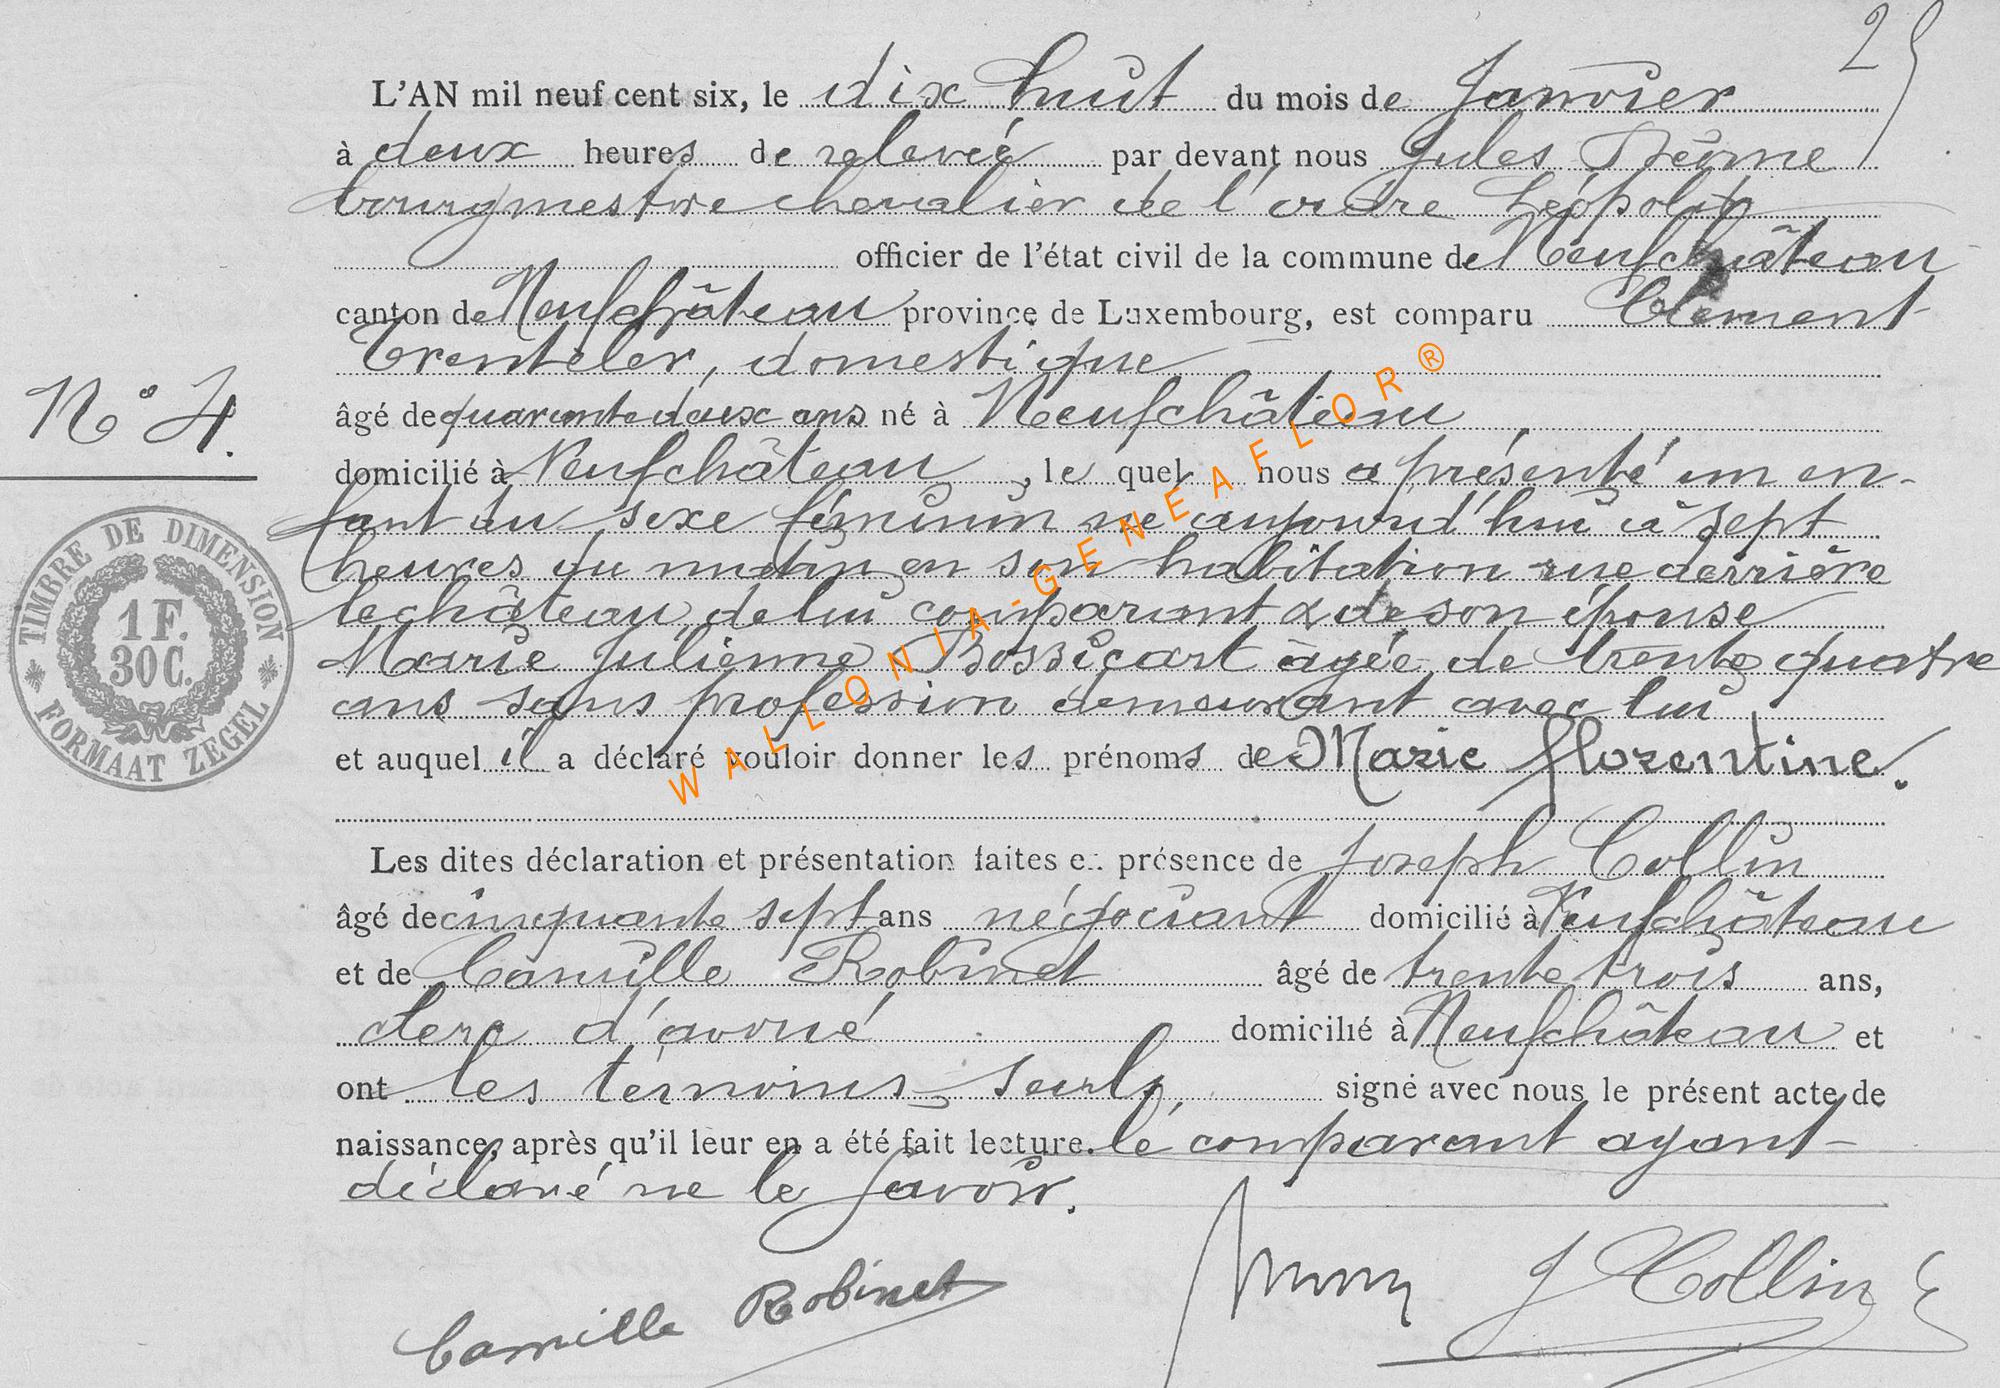 25
L'AN mil neuf cent six, le dix huit du mois de Janvier
à deux heures de relevée par devant nous Jules
bourgmestre chevalier de l'ordre Léopold
officier de l'état civil de la commune de Neufchâteau
canton de Neufchâteau province de Luxembourg, est comparu Clément
Trenteler, domestique
N° 4.
âgé de quarante deux ans né à Neufchâteau
domicilié à Neufchâteau, le quel nous a présenté un en-
fant du sexe féminin né aujourd'hui à sept
heures du matin en son habitation rue derrière
le château, de lui comparant & de son épouse
Marie Julienne Bossicart âgée de trente quatre
ans sans profession demeurant avec lui
et auquel il a déclaré vouloir donner les prénoms de Marie florentine.
Les dites déclaration et présentation faites en présence de Joseph Collin
âgé de cinquante sept ans négociant domicilié à Neufchâteau
et de Camille Robinet âgé de trente trois ans,
clerc d'avoué domicilié à Neufchâteau et
ont les témoins seuls, signé avec nous le présent acte de
naissance, après qu'il leur en a été fait lecture. le comparant ayant
déclaré ne le savoir.
Camille Robinet
J Collin
TIMBRE DE DIMENSION
1 F.
30 C.
FORMAAT ZEGEL
WALLONIA-GENEAFLOR®